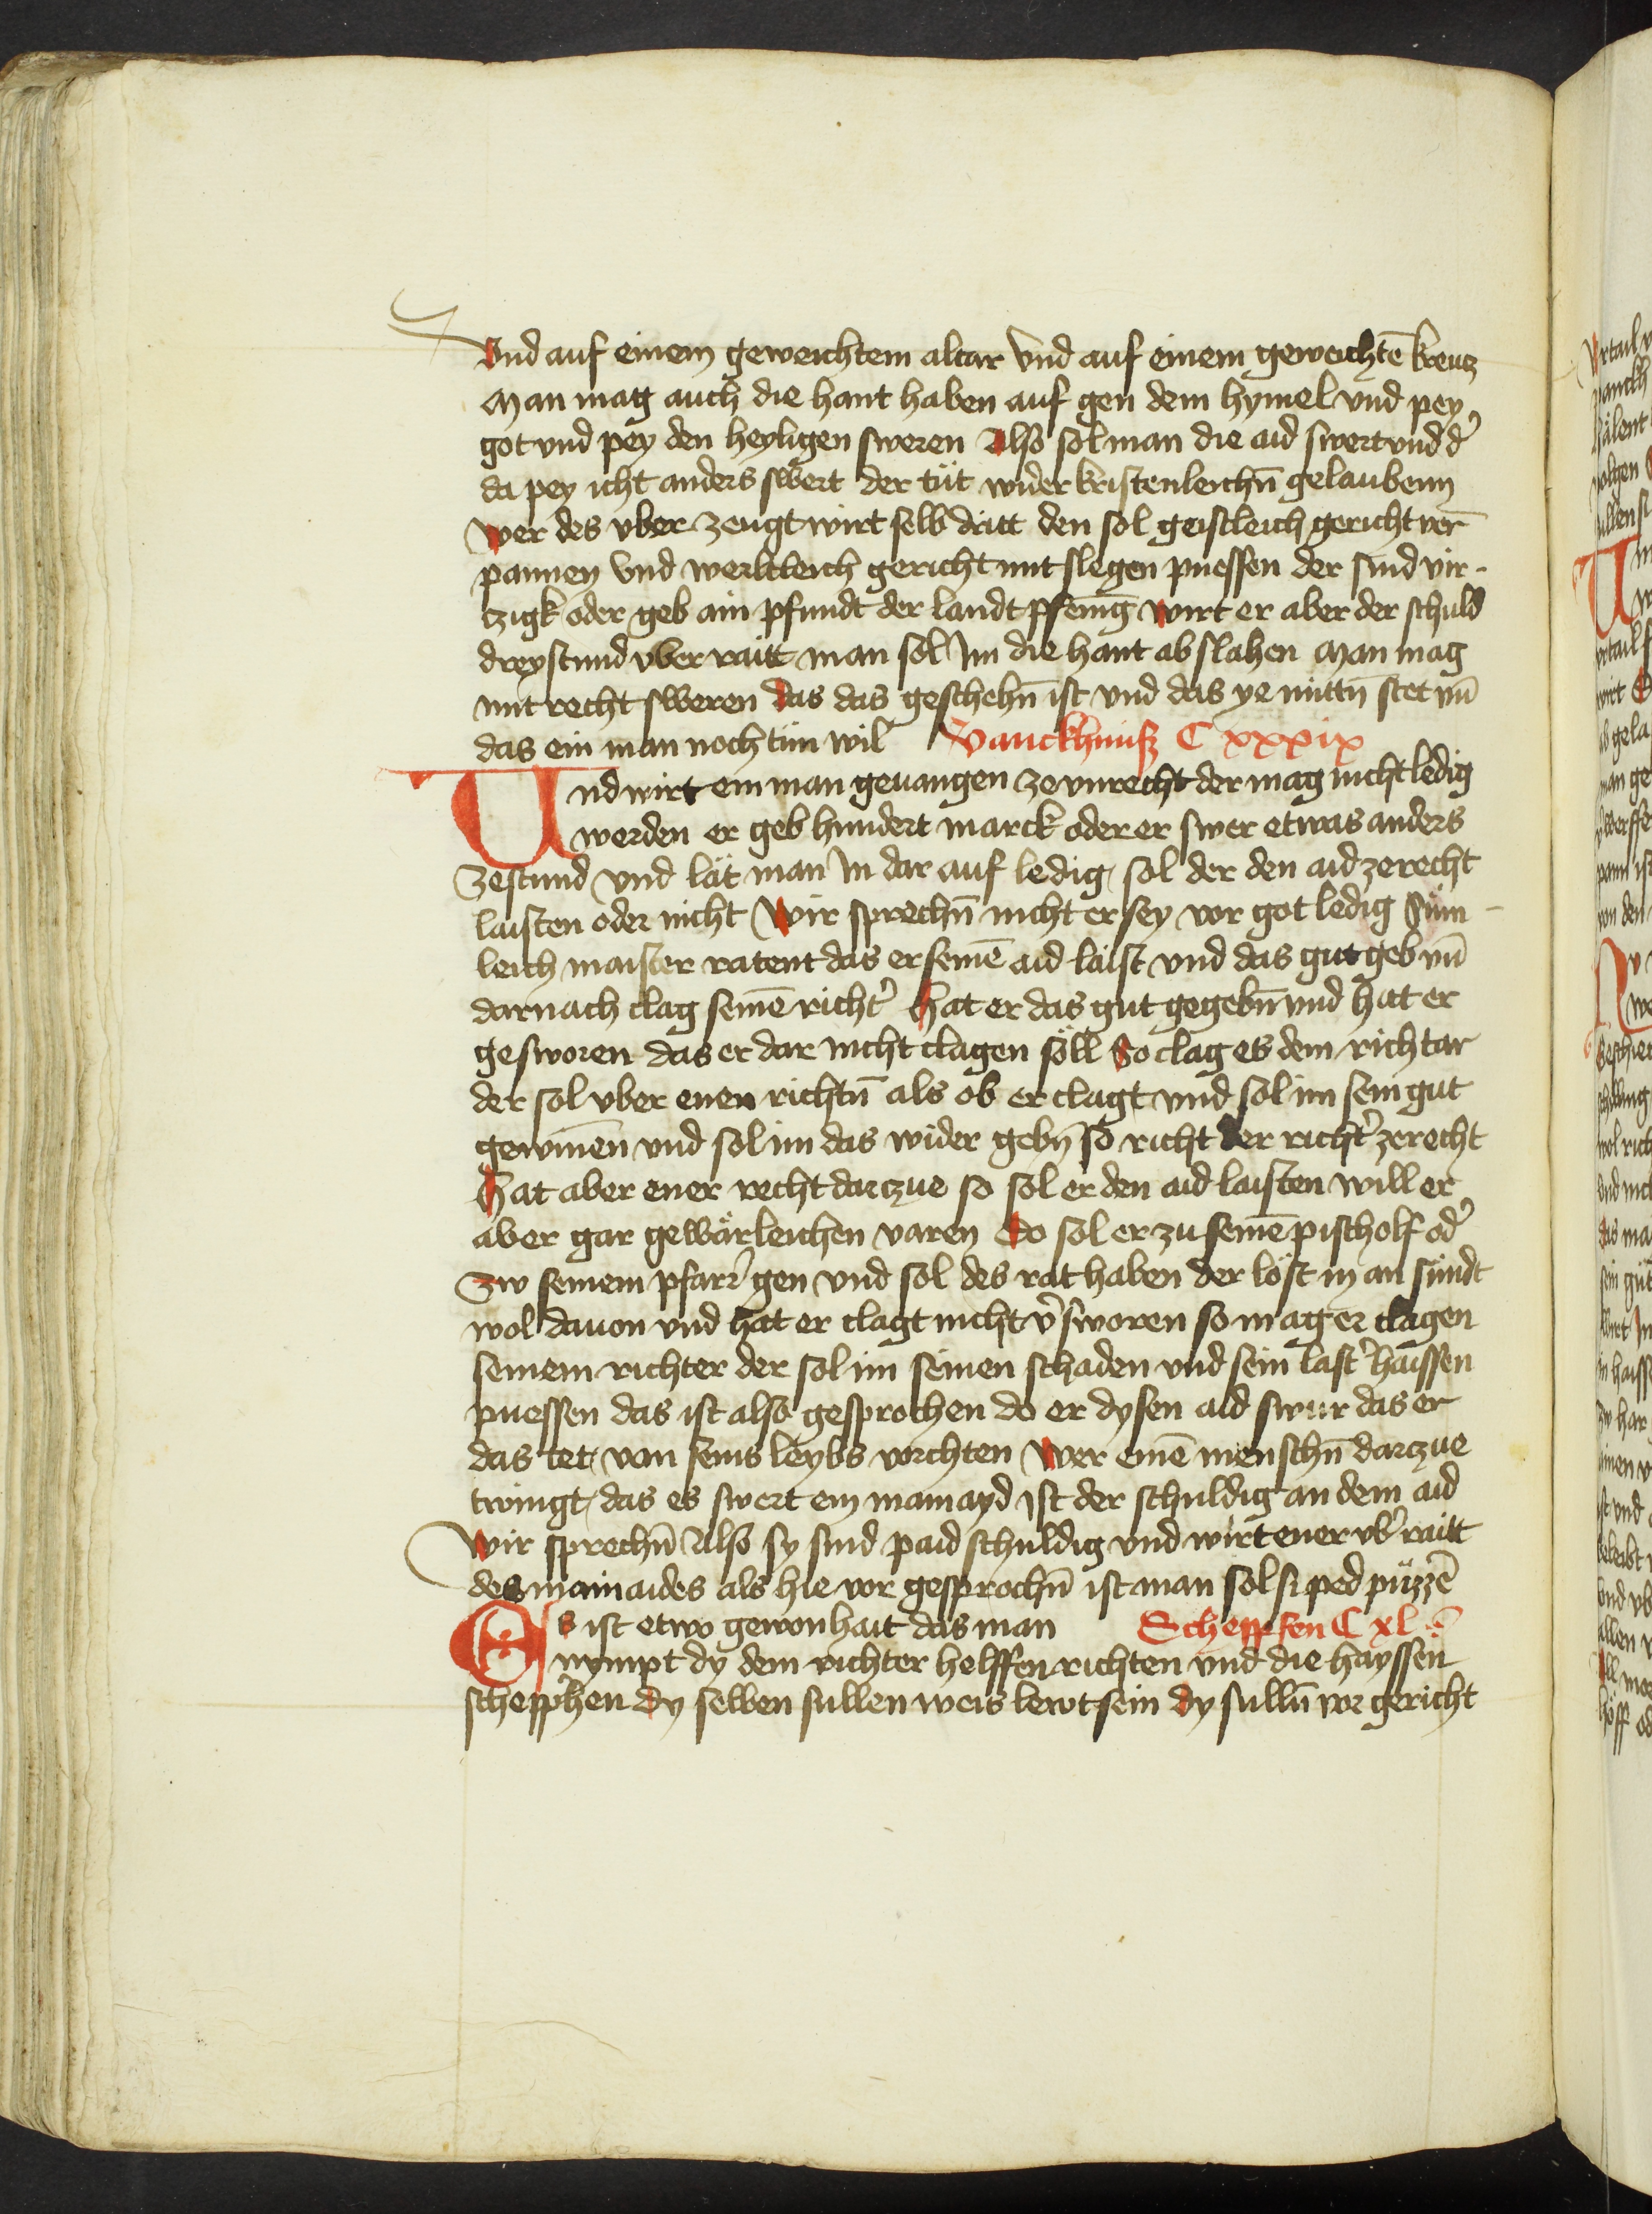 Vnd auf einem geweichtem altar vnd auf einem geweichtē kreutz
Man mag auch die hant haben auf gen dem hymel vnd pey
got vnd pey den heyligen sweren Also sol man die aid swert vnd d'
da pey icht anders swert der tüt wider kristenleichn̄ gelaubenn
Wer des vber zeugt wirt selb dritt den sol geistleich gericht ver
pannen vnd werltleich gericht mit slegen puessen der sind vir-
tzigk oder geb ain pfundt der landt pfenig̅ wirt er aber der schuld
dreystund vber raitt man sol Im die hant ab slahen Man mag
mit recht sweren das das geschehn̄ ist vnd das ye mittn̄ stet vn̄
das ein man noch tün wil Vanckhnüß C xxxix
Und wirt ein man geuangen ze vnrecht der mag nicht ledig
werden er geb hundert marck oder er swer etwas anders
zestund vnd lät man In dar auf ledig sol der den aid zerecht
laisten oder nicht Wir sprechn̄ nicht er sey vor got ledig Süm-
leich maister ratent das er seinē aid laist vnd das gut geb vn̄
darnach clag seinē richt' Hat er das gut gegebn̄ vnd hat er
gesworen das er dar nicht clagen söll So clag es dem richtar
der sol vber enen richtn̄ als ob er clagt vnd sol im sein gut
gewinen̄ vnd sol im das wider gebn̄ so richt der richt' zerecht
Hat aber ener recht darczue so sol er den aid laisten will er
aber gar gewärleichen varen Do sol er zu seinē pischolf od'
Zw seinem pfarr' gen vnd sol des rat haben der löst in an sündt
wol dauon vnd hat er clagt nicht v'sworen so mag er clagen
seinem richter der sol im seinen schaden vnd sein last' haissen
puessen das ist also gesprochen do er dysen aid swur das er
das tet von seins leybs vorchten Wer einē menschn̄ darczue
twingt das es swert ein mainayd ist der schuldig an dem aid
Wir sprechn̄ Also sy sind paid schuldig vnd wirt ener vb' raitt
des mainaides als hie vor gesprochn̄ ist man sol si ped püzzē
Es ist etwo gewonhait das man Scheppfen C xl
nympt dy dem richter helffen richten vnd die hayssen
schepphen dy selben sullen weis lewt sein dy sulln̄ vor gericht